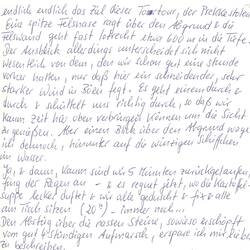 endlich endlich das Ziel dieser Tour, der Prekestolen
Eine spitze Felsnase ragt über den Abgrund & die
Felswand geht fast lotrecht etwa 600 m in die Tiefe.
Der Ausblick allerdings unterscheidet sich nicht
wesentlich von dem, den wir schon gut eine Stunde
vorher hatten, nur daß hier ein schneidender, sehr
starker Wind in Böen fegt. Es geht einem durch &
durch & schüttelt uns richtig durch, so daß wir
kaum Zeit hier oben verbringen können um die Sicht
zu genießen. Aber einen Blick über den Abgrund wage
ich dennoch, hinunter auf die winzigen Schiffchen
im Wasser.
Ja, & dann, kaum sind wir 5 Minuten zurückgelaufen,
fing der Regen an - & es regnet jetzt, wo die Kartoffel-
suppe lecker duftet & wir alle geduscht & fix & alle
am Tisch sitzen (20⁰⁰) - immer noch...
Den Abstieg über die nassen Steine, sowieso erschöpft
vom gut 4 stündigen Aufmarsch, erspare ich mir lieber
zu beschreiben.